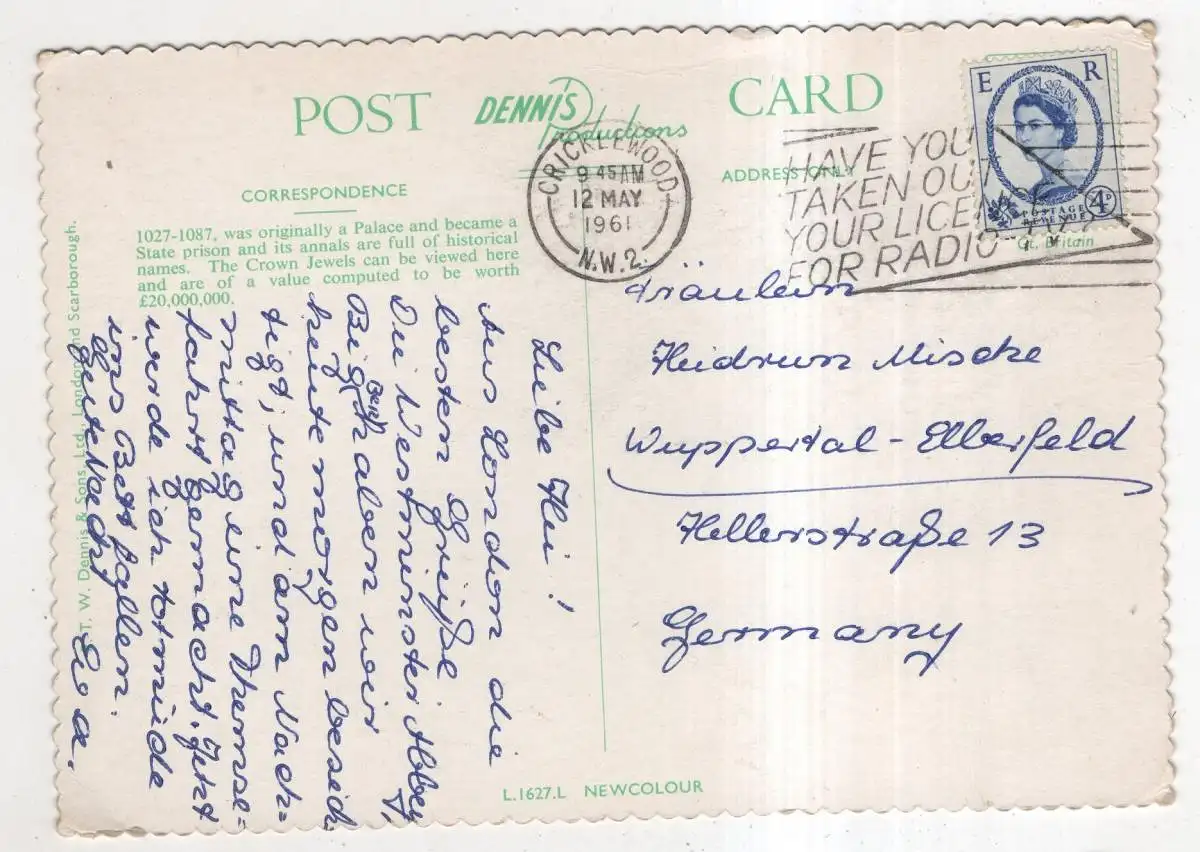 POST DENNIS Productions CARD
CORRESPONDENCE
ADDRESS ONLY
1027-1087, was originally a Palace and became a
State prison and its annals are full of historical
names. The Crown Jewels can be viewed here
and are of a value computed to be worth
£20,000,000.
T. W. Dennis & Sons, Ltd., London and Scarborough.
CRICKLEWOOD
9 45 AM
12 MAY
1961
N.W.2.
HAVE YOU
TAKEN OU
YOUR LICE
FOR RADIO
E R
POSTAGE
REVENUE
4D
Gt. Britain
Liebe Hei!
Aus London die
besten Grüße
Die Westminster Abbey
Big Ben haben wir
heute morgen besich
tigt, und am Nach-
mittag eine Themse-
fahrt gemacht. Jetzt
werde ich todmüde
ins Bett fallen.
Gute Nacht
Fräulein
Heidrun Mischke
Wuppertal-Elberfeld
Hellerstraße 13
Germany
L.1627.L NEWCOLOUR